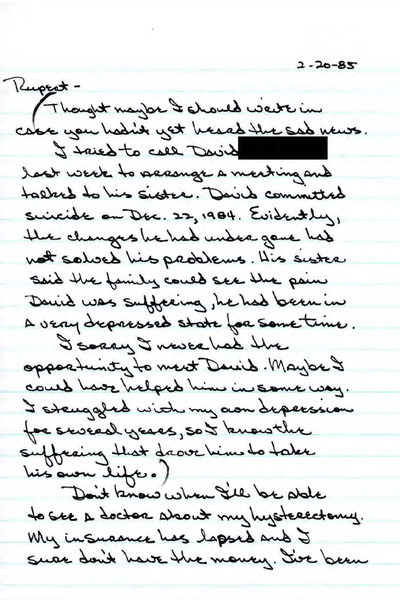 2-20-85
Rupert -
(Thought maybe I should write in
case you hadn't yet heard the sad news.
I tried to call David
last week to arrange a meeting and
talked to his sister. David committed
suicide on Dec. 22, 1984. Evidently,
the changes he had under gone had
not solved his problems. His sister
said the family could see the pain
David was suffering, he had been in
a very depressed state for some time.
I sorry I never had the
opportunity to meet David. Maybe I
could have helped him in some way.
I struggled with my own depression
for several years, so I know the
suffering that drove him to take
his own life.)
Don't know when I'll be able
to see a doctor about my hysterectomy.
My insurance has lapsed and I
sure don't have the money. I've been